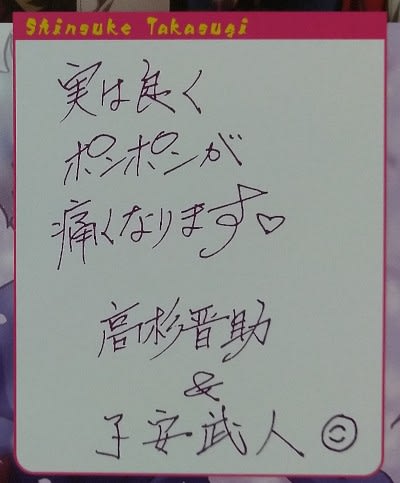 Shinsuke Takasugi
実は良く
ポンポンが
痛くなります♡
高杉晋助
&
子安武人